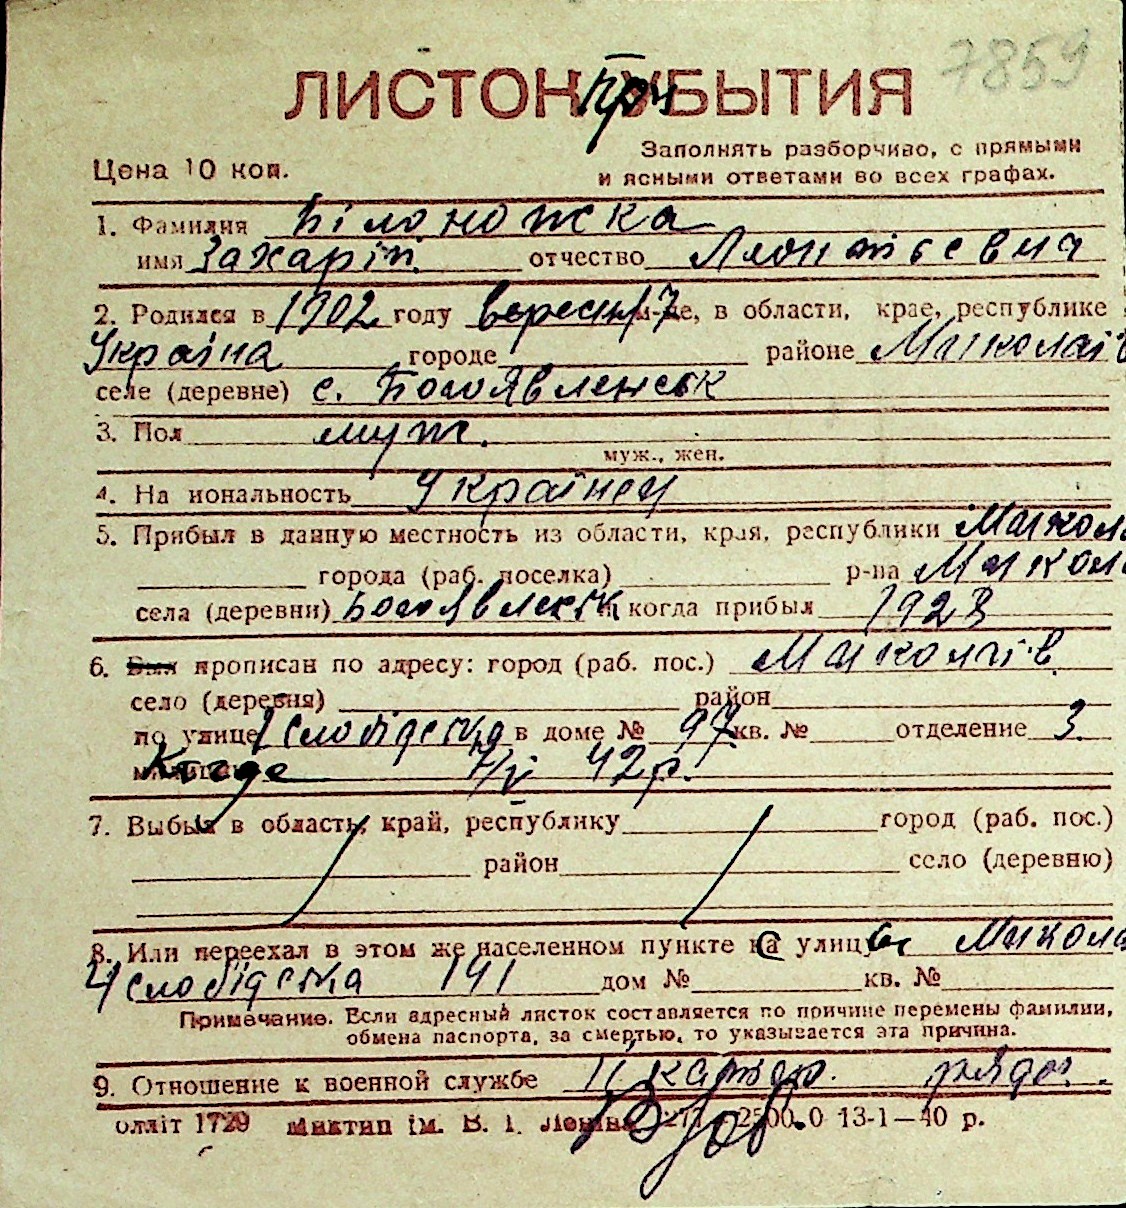 7859
ЛИСТОК УБЫТИЯ
Цена 10 коп.
Заполнять разборчиво, с прямыми
и ясными ответами во всех графах.
1. Фамилия Білоножка
имя Захарій отчество Леонтьевич
2. Родился в 1902 году вересн 17 м-це, в области, крае, республике
Україна городе районе Миколаїв
селе (деревне) с. Богоявленськ
3. Пол муж.
муж., жен.
4. Национальность Українец
5. Прибыл в данную местность из области, края, республики Микола
города (раб. поселка) р-на Микола
села (деревни) Богоявленськ и когда прибыл 1928
6. Был прописан по адресу: город (раб. пос.) Миколаїв
село (деревня) район
по улице 1 Слобідська в доме № 97 кв. № отделение 3
7/V 42 р.
7. Выбыл в область, край, республику город (раб. пос.)
район село (деревню)
8. Или переехал в этом же населенном пункте на улицу Микола
4 Слобідська 141 дом № кв. №
Примечание. Если адресный листок составляется по причине перемены фамилии,
обмена паспорта, за смертью, то указывается эта причина.
9. Отношение к военной службе
олліт 1729 Миктип ім. В. І. Леніна 13-1—40 р.